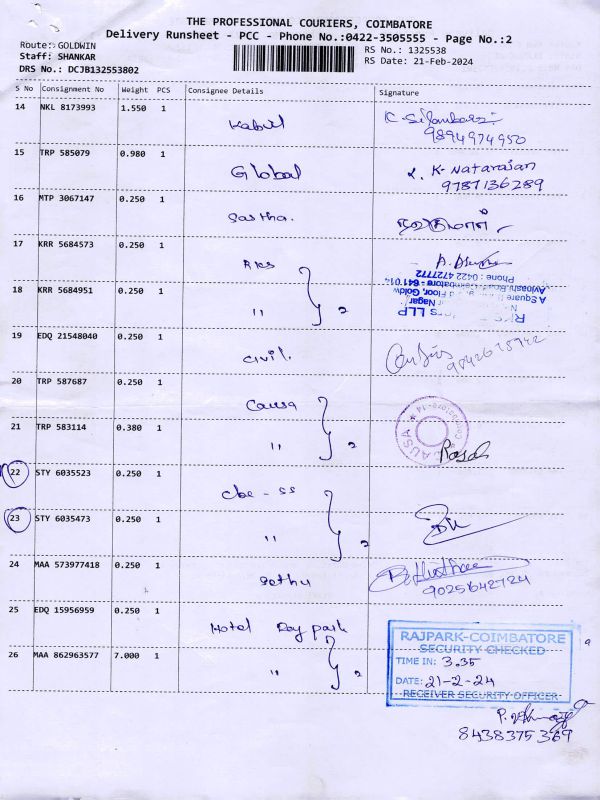 THE PROFESSIONAL COURIERS, COIMBATORE
Delivery Runsheet - PCC - Phone No.:0422-3505555 - Page No.:2
Route: GOLDWIN
Staff: SHANKAR
DRS No.: DCJB132553802
RS No.: 1325538
RS Date: 21-Feb-2024
S No Consignment No Weight PCS Consignee Details Signature
14 NKL 8173993 1.550 1
9894974950
15 TRP 585079 0.980 1 Global K. Natarajan
9787136289
16 MTP 3067147 0.250 1 Sastha.
17 KRR 5684573 0.250 1 RKS
18 KRR 5684951 0.250 1 " 2
Phone : 0422 4727772
19 EDQ 21548040 0.250 1 Civil.
20 TRP 587687 0.250 1 Causa
21 TRP 583114 0.380 1 " 2
22 STY 6035523 0.250 1 Cbe - SS
23 STY 6035473 0.250 1 " 2
24 MAA 573977418 0.250 1 Sethu
9025642724
25 EDQ 15956959 0.250 1 Hotel Raj park
26 MAA 862963577 7.000 1 " 2
RAJPARK-COIMBATORE
SECURITY CHECKED
TIME IN: 3.35
DATE: 21-2-24
RECEIVER SECURITY OFFICER
8438375369